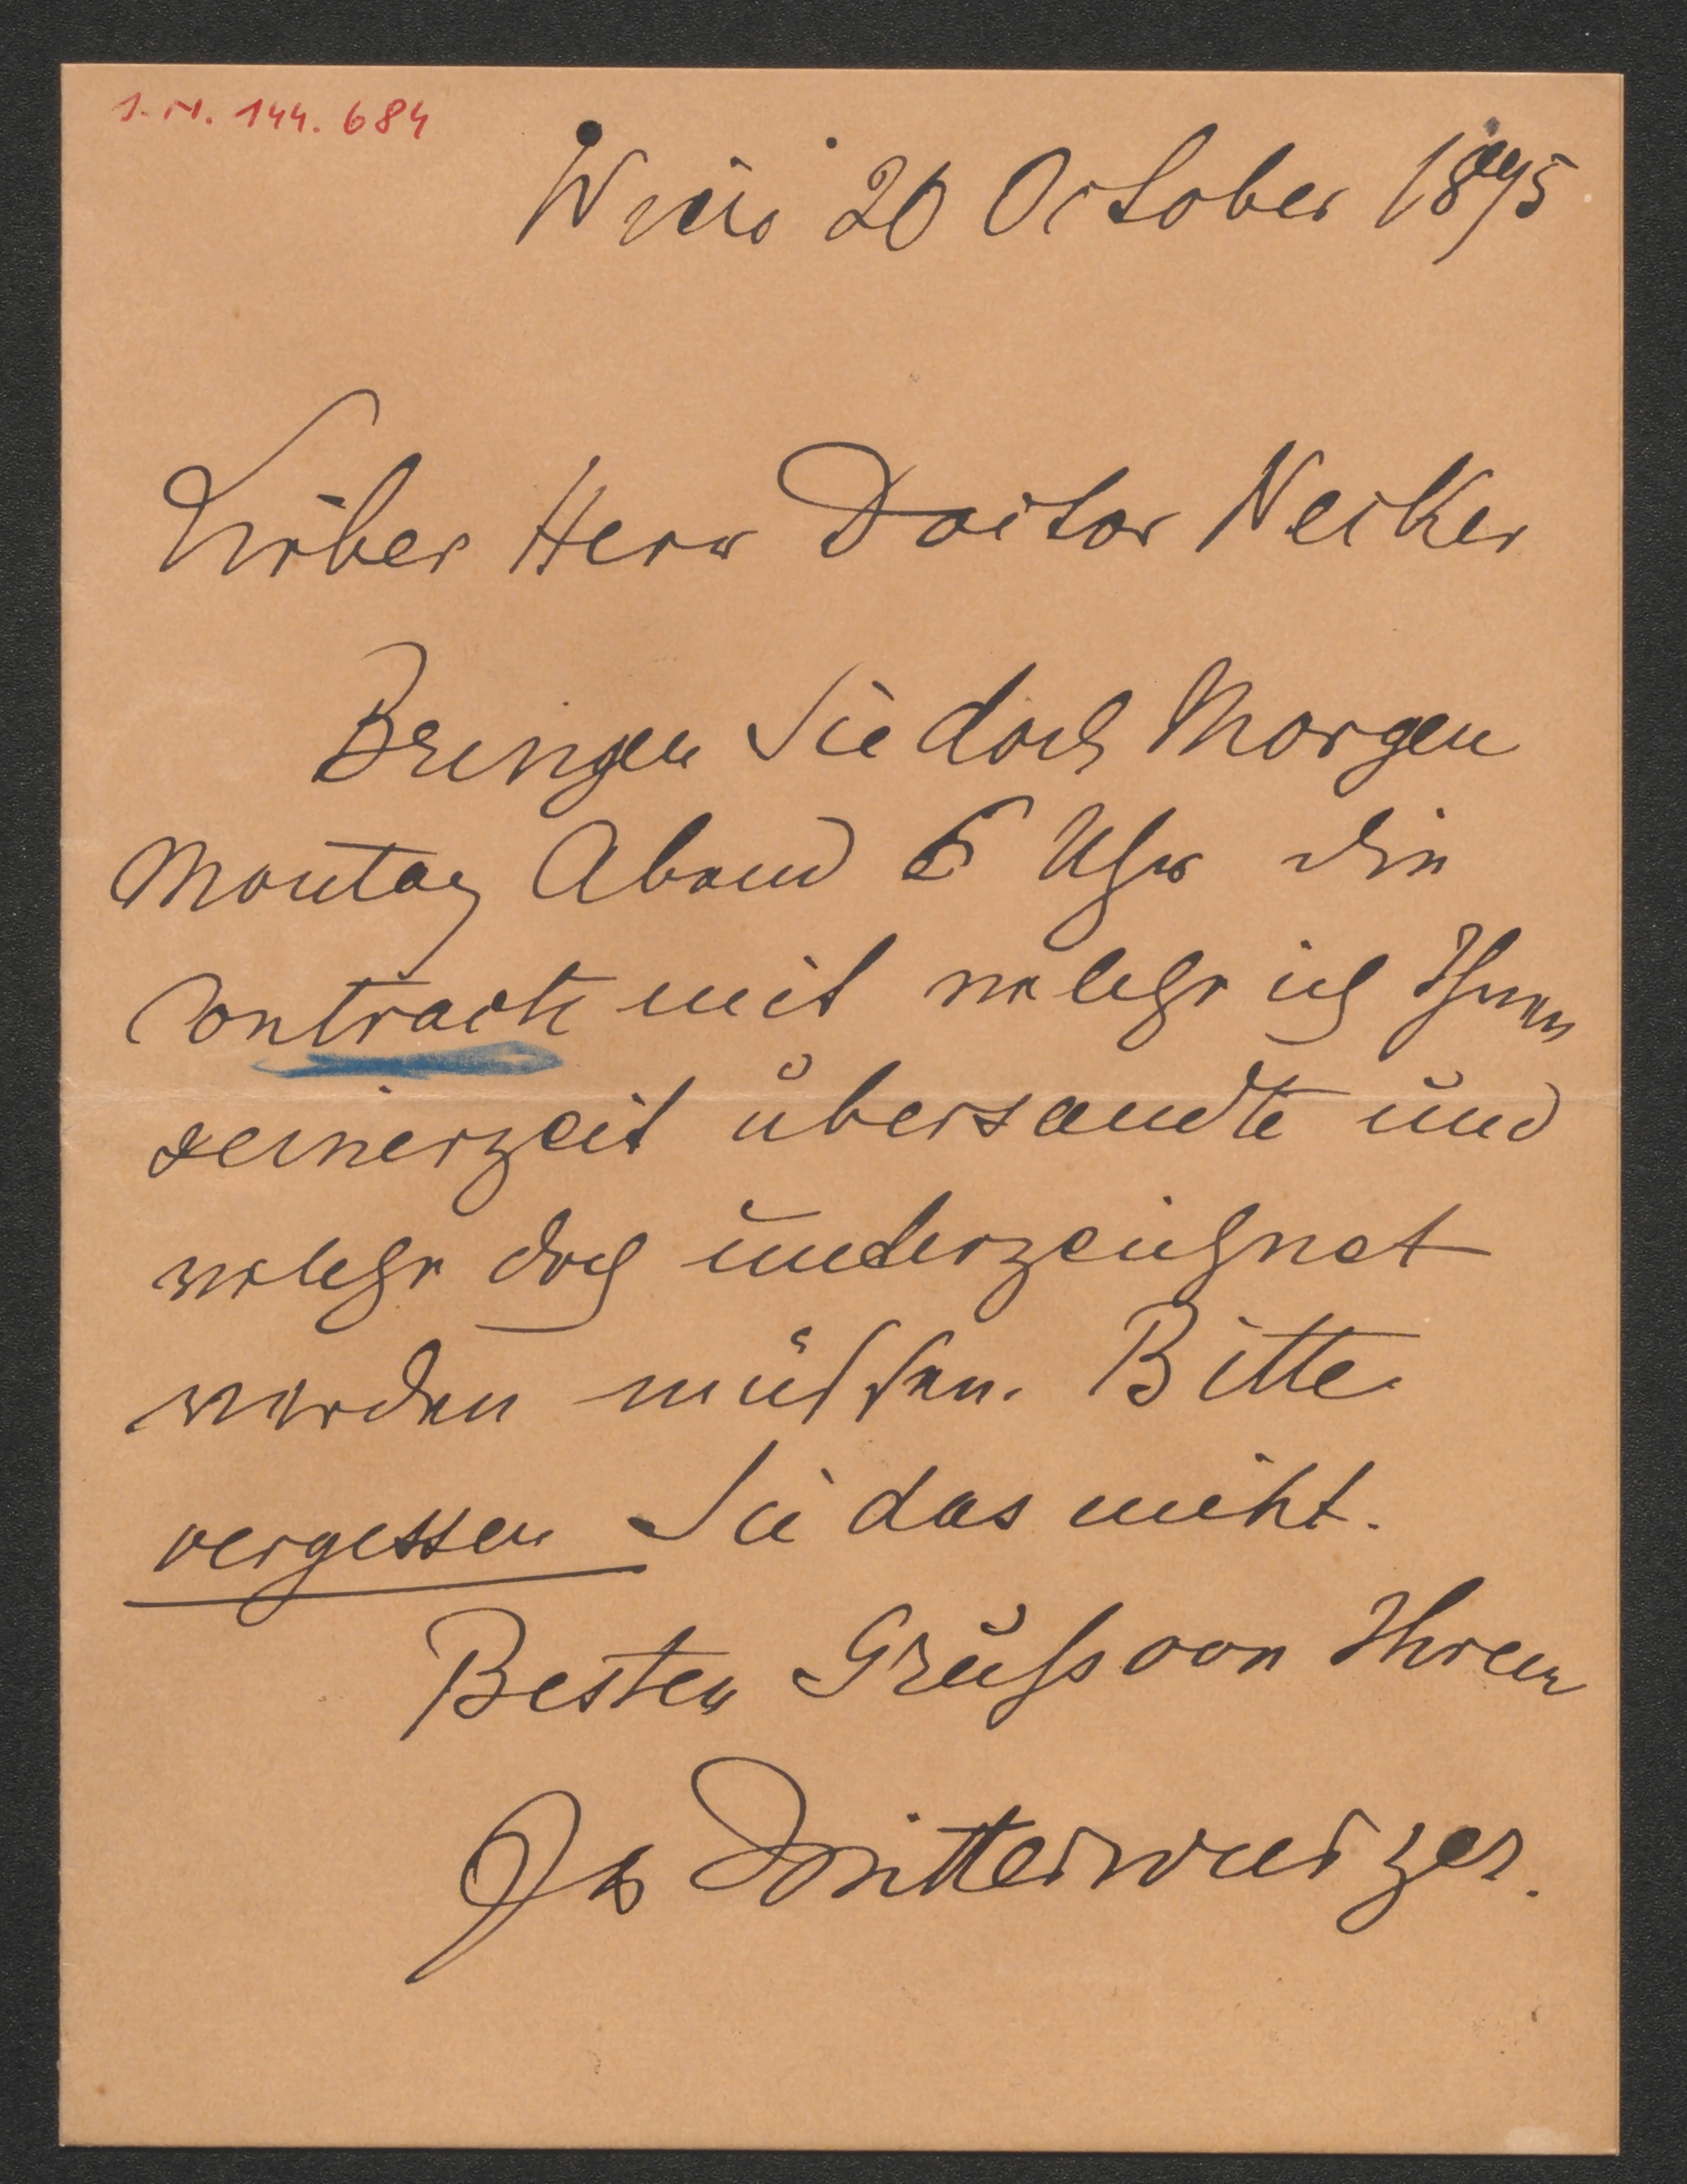 J. N. 144.684
Wien 20 October 1895
Lieber Herr Doctor Necker
Bringen Sie doch Morgen
Montag Abend 6 Uhr die
Contracte mit welche ich Ihnen
seinerzeit übersandte und
welche doch unterzeichnet
werden müssen. Bitte
vergessen Sie das nicht.
Besten Gruß von Ihrem
Mitterwurzer.